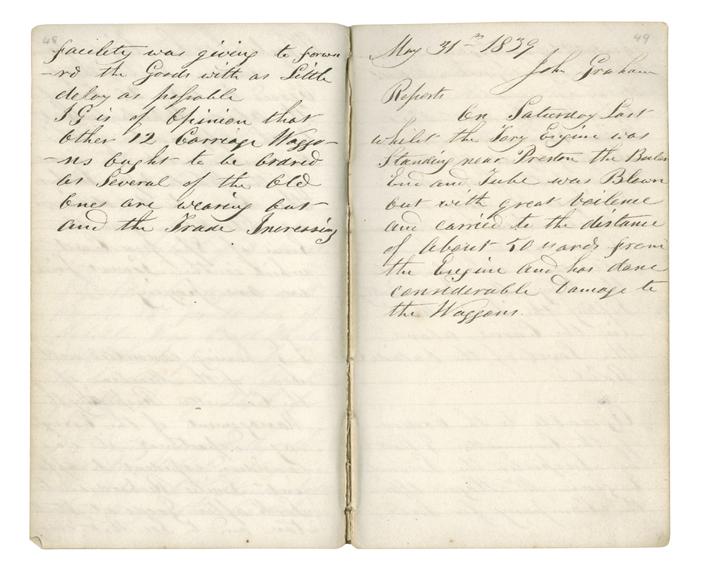 48
facility was giving to forwa
-rd the Goods with as Little
delay as possable
J G is of Opinion that
Other 12 Carriage Waggo-
-ns Ought to be Ordred
as Several of the Old
Ones are wearing Out
and the Trade Increasing
49
May 31st 1839
John Graham
Reports
On Saturday Last
whilst the Tory Engine was
Standing near Preston the Boiler
End and Tube was Blown
Out with great Voilence
and carried to the distance
of About 50 yards from
the Engine and has done
considerable Damage to
the Waggons.